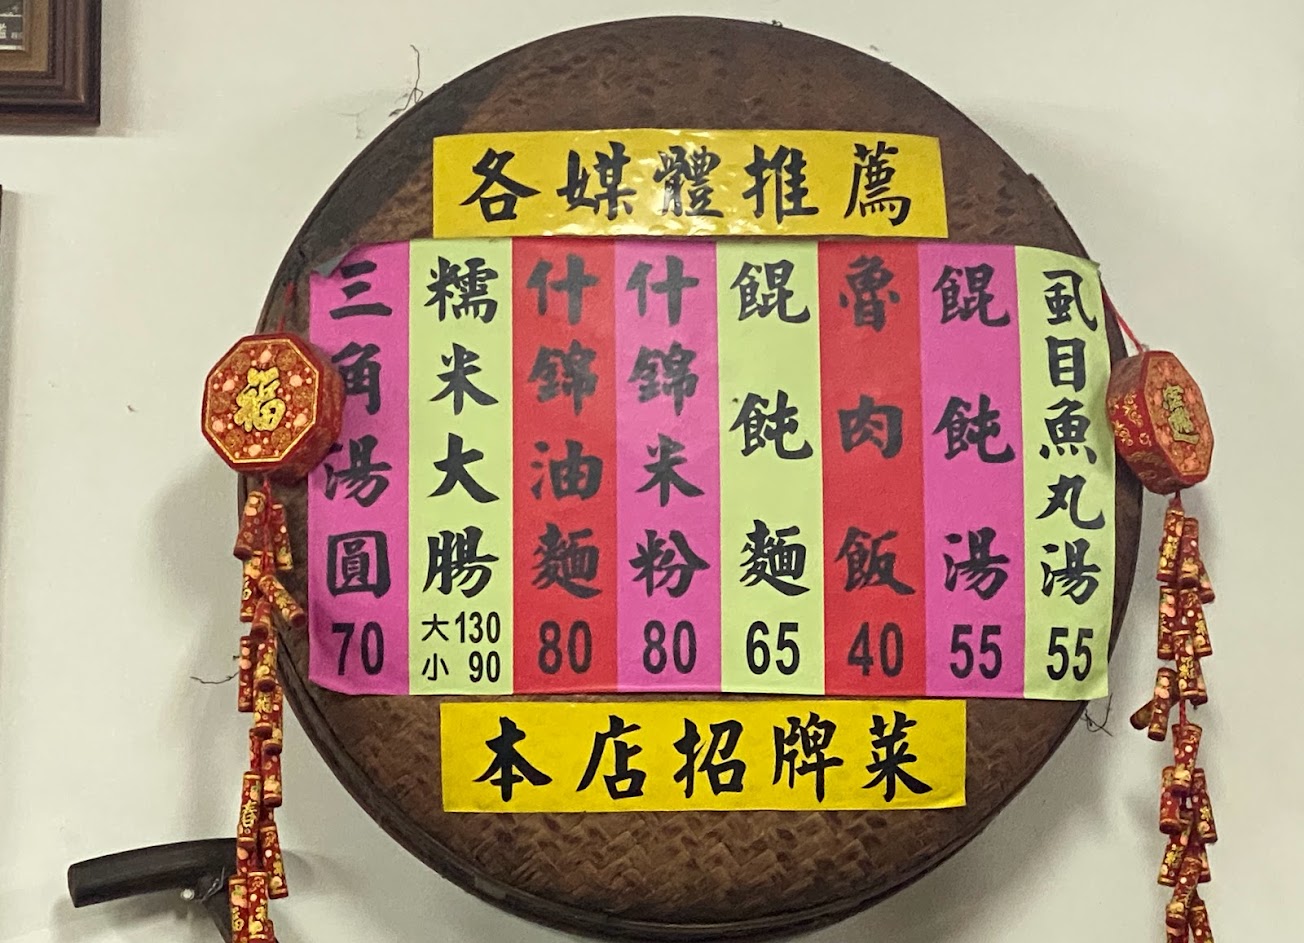 各媒體推薦
虱目魚丸湯 55
餛飩湯 55
魯肉飯 40
餛飩麵 65
什錦米粉 80
什錦油麵 80
糯米大腸 大130 小90
三角湯圓 70
本店招牌菜
福